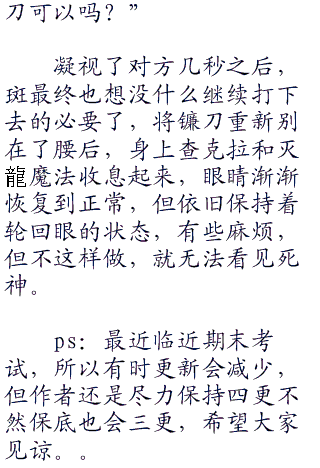 刀可以吗？”
凝视了对方几秒之后，
斑最终也想没什么继续打下
去的必要了，将镰刀重新别
在了腰后，身上查克拉和灭
龍魔法收息起来，眼睛渐渐
恢复到正常，但依旧保持着
轮回眼的状态，有些麻烦，
但不这样做，就无法看见死
神。
ps：最近临近期末考
试，所以有时更新会减少，
但作者还是尽力保持四更不
然保底也会三更，希望大家
见谅。。